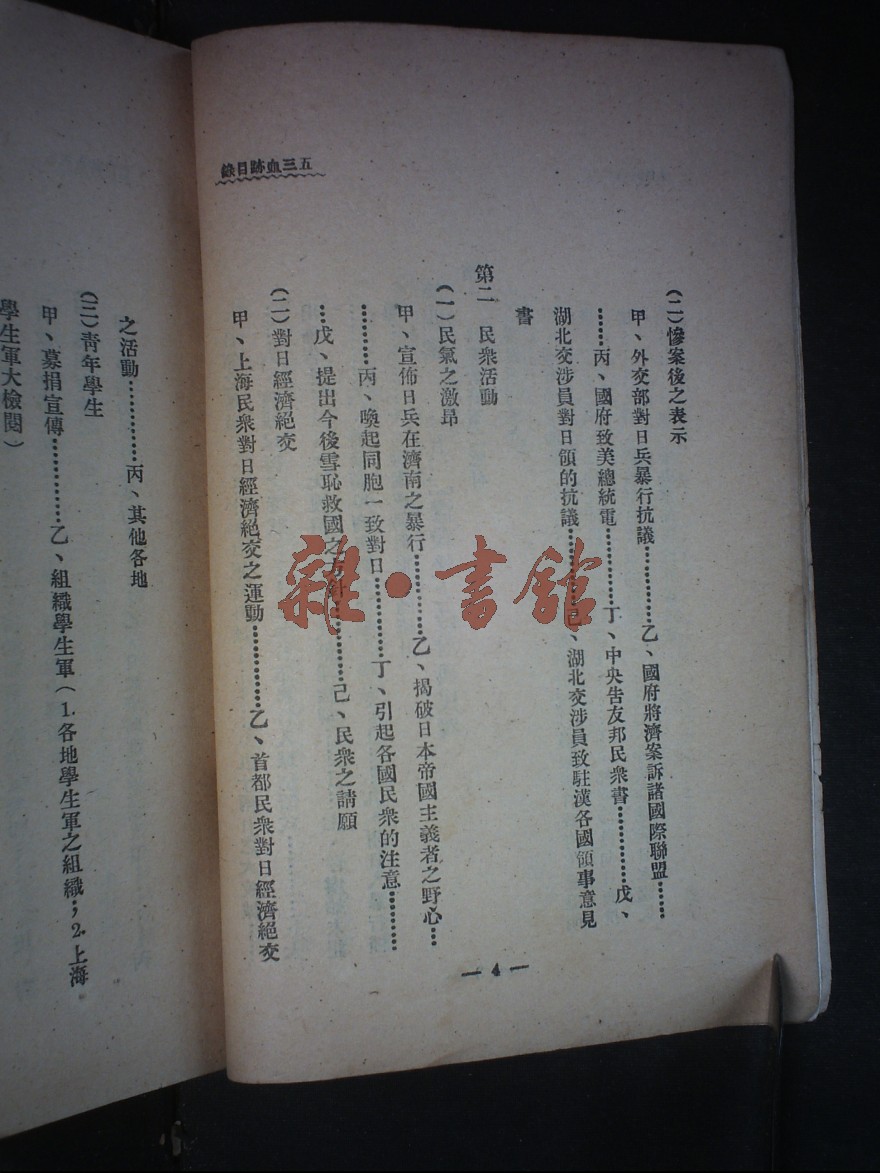 五三血跡目錄
(二)慘案後之表示
甲、外交部對日兵暴行抗議…………乙、國府將濟案訴諸國際聯盟……
……丙、國府致美總統電…………丁、中央告友邦民衆書…………戊、
湖北交涉員對日領的抗議…………己、湖北交涉員致駐漢各國領事意見
書
第二 民衆活動
(一)民氣之激昂
甲、宣佈日兵在濟南之暴行…………乙、揭破日本帝國主義者之野心…
………丙、喚起同胞一致對日…………丁、引起各國民衆的注意………
…戊、提出今後雪恥救國之方針…………己、民衆之請願
(二)對日經濟絕交
甲、上海民衆對日經濟絕交之運動…………乙、首都民衆對日經濟絕交
— 4 —
之活動…………丙、其他各地
(三)青年學生
甲、募捐宣傳…………乙、組織學生軍(1.各地學生軍之組織；2.上海
學生軍大檢閱)
雜·書館